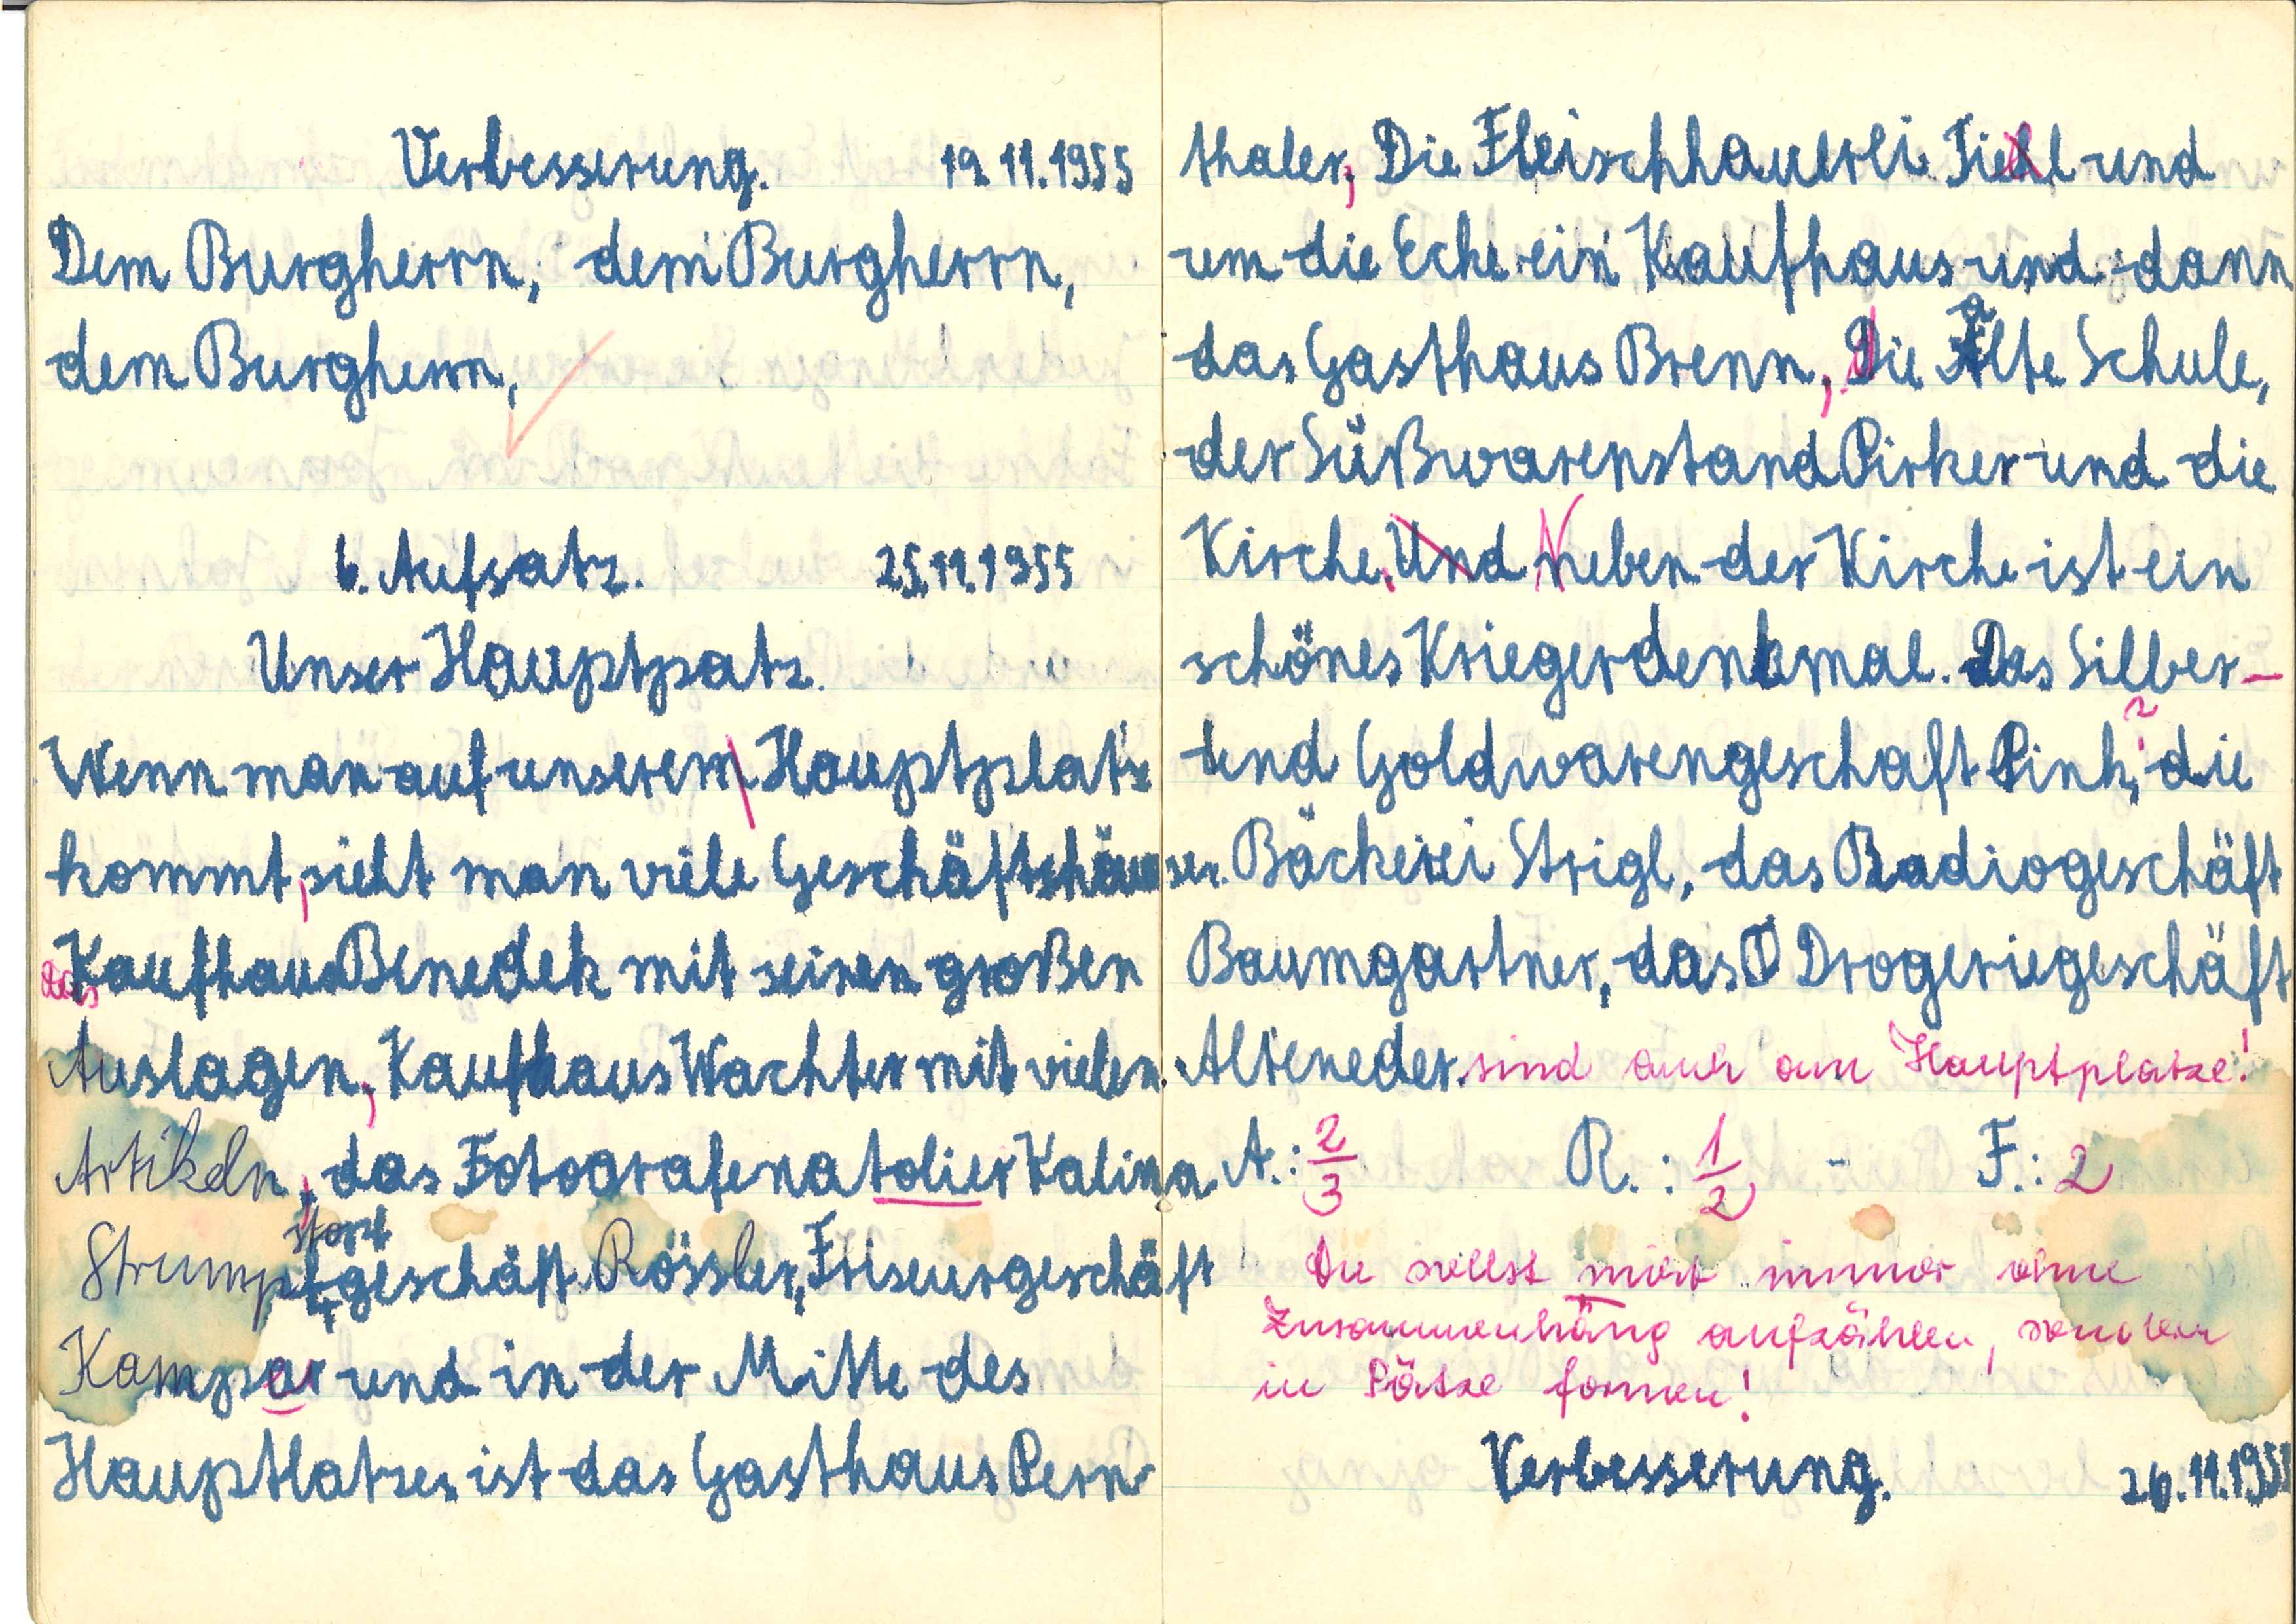 Verbesserung. 19.11.1955
Dem Burgherrn, dem Burgherrn,
dem Burgherrn,
6. Aufsatz. 25.11.1955
Unser Hauptpatz.
Wenn man auf unserem Hauptplatz
kommt, sieht man viele Geschäftshäuser.
das Kaufhaus Benedek mit seinen großen
Auslagen, Kaufhaus Wachter mit vielen
Artikeln, das Fotografenatolier Kalina
Strumpfgeschäft Rössler, Friseurgeschäft
Kamper und in der Mitte des
Hauptlatzes ist das Gasthaus Pern-
thaler, Die Fleischhauerei Fiehl und
um die Ecke ein Kaufhaus und dann
das Gasthaus Brenn, die alte Schule,
der Süßwarenstand Pirker und die
Kirche. Und Neben der Kirche ist ein
schönes Kriegerdenkmal. Das Silber-
und Goldwarengeschaft Pink, die
Bäckerei Strigl, das Radiogeschäft
Baumgartner, das Drogeriegeschäft
Alteneder. sind auch am Hauptplatze!
A.: 2/3 R.: 1/2 - F.: 2
Du sollst nicht immer ohne
Zusammenhang aufzählen, sondern
in Sätze formen!
Verbesserung. 26.11.1955